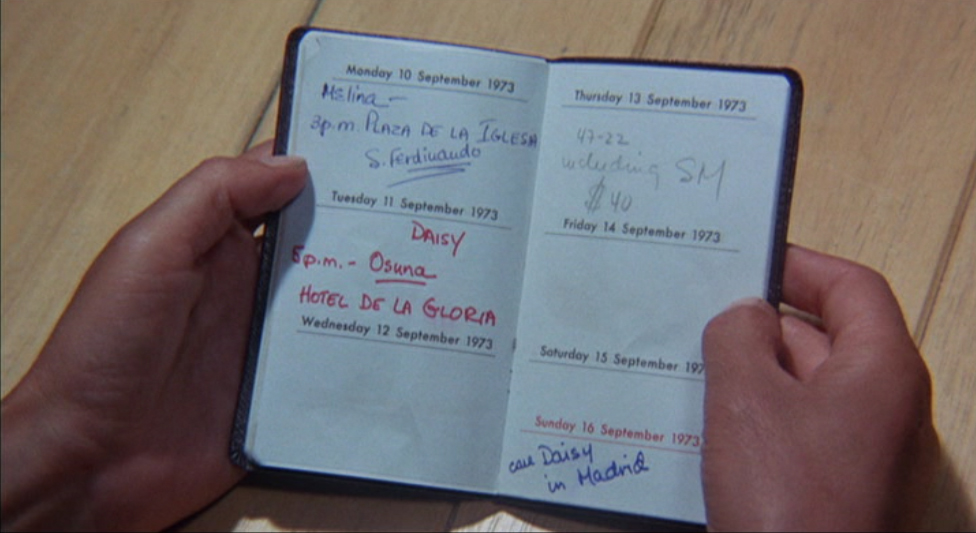 Monday 10 September 1973
Melina -
3p.m. PLAZA DE LA IGLESIA
S. Ferdinando
Tuesday 11 September 1973
DAISY
5p.m. - Osuna
HOTEL DE LA GLORIA
Wednesday 12 September 1973
Thursday 13 September 1973
47-22
including SM
$40
Friday 14 September 1973
Saturday 15 September 197
Sunday 16 September 1973
call Daisy
in Madrid